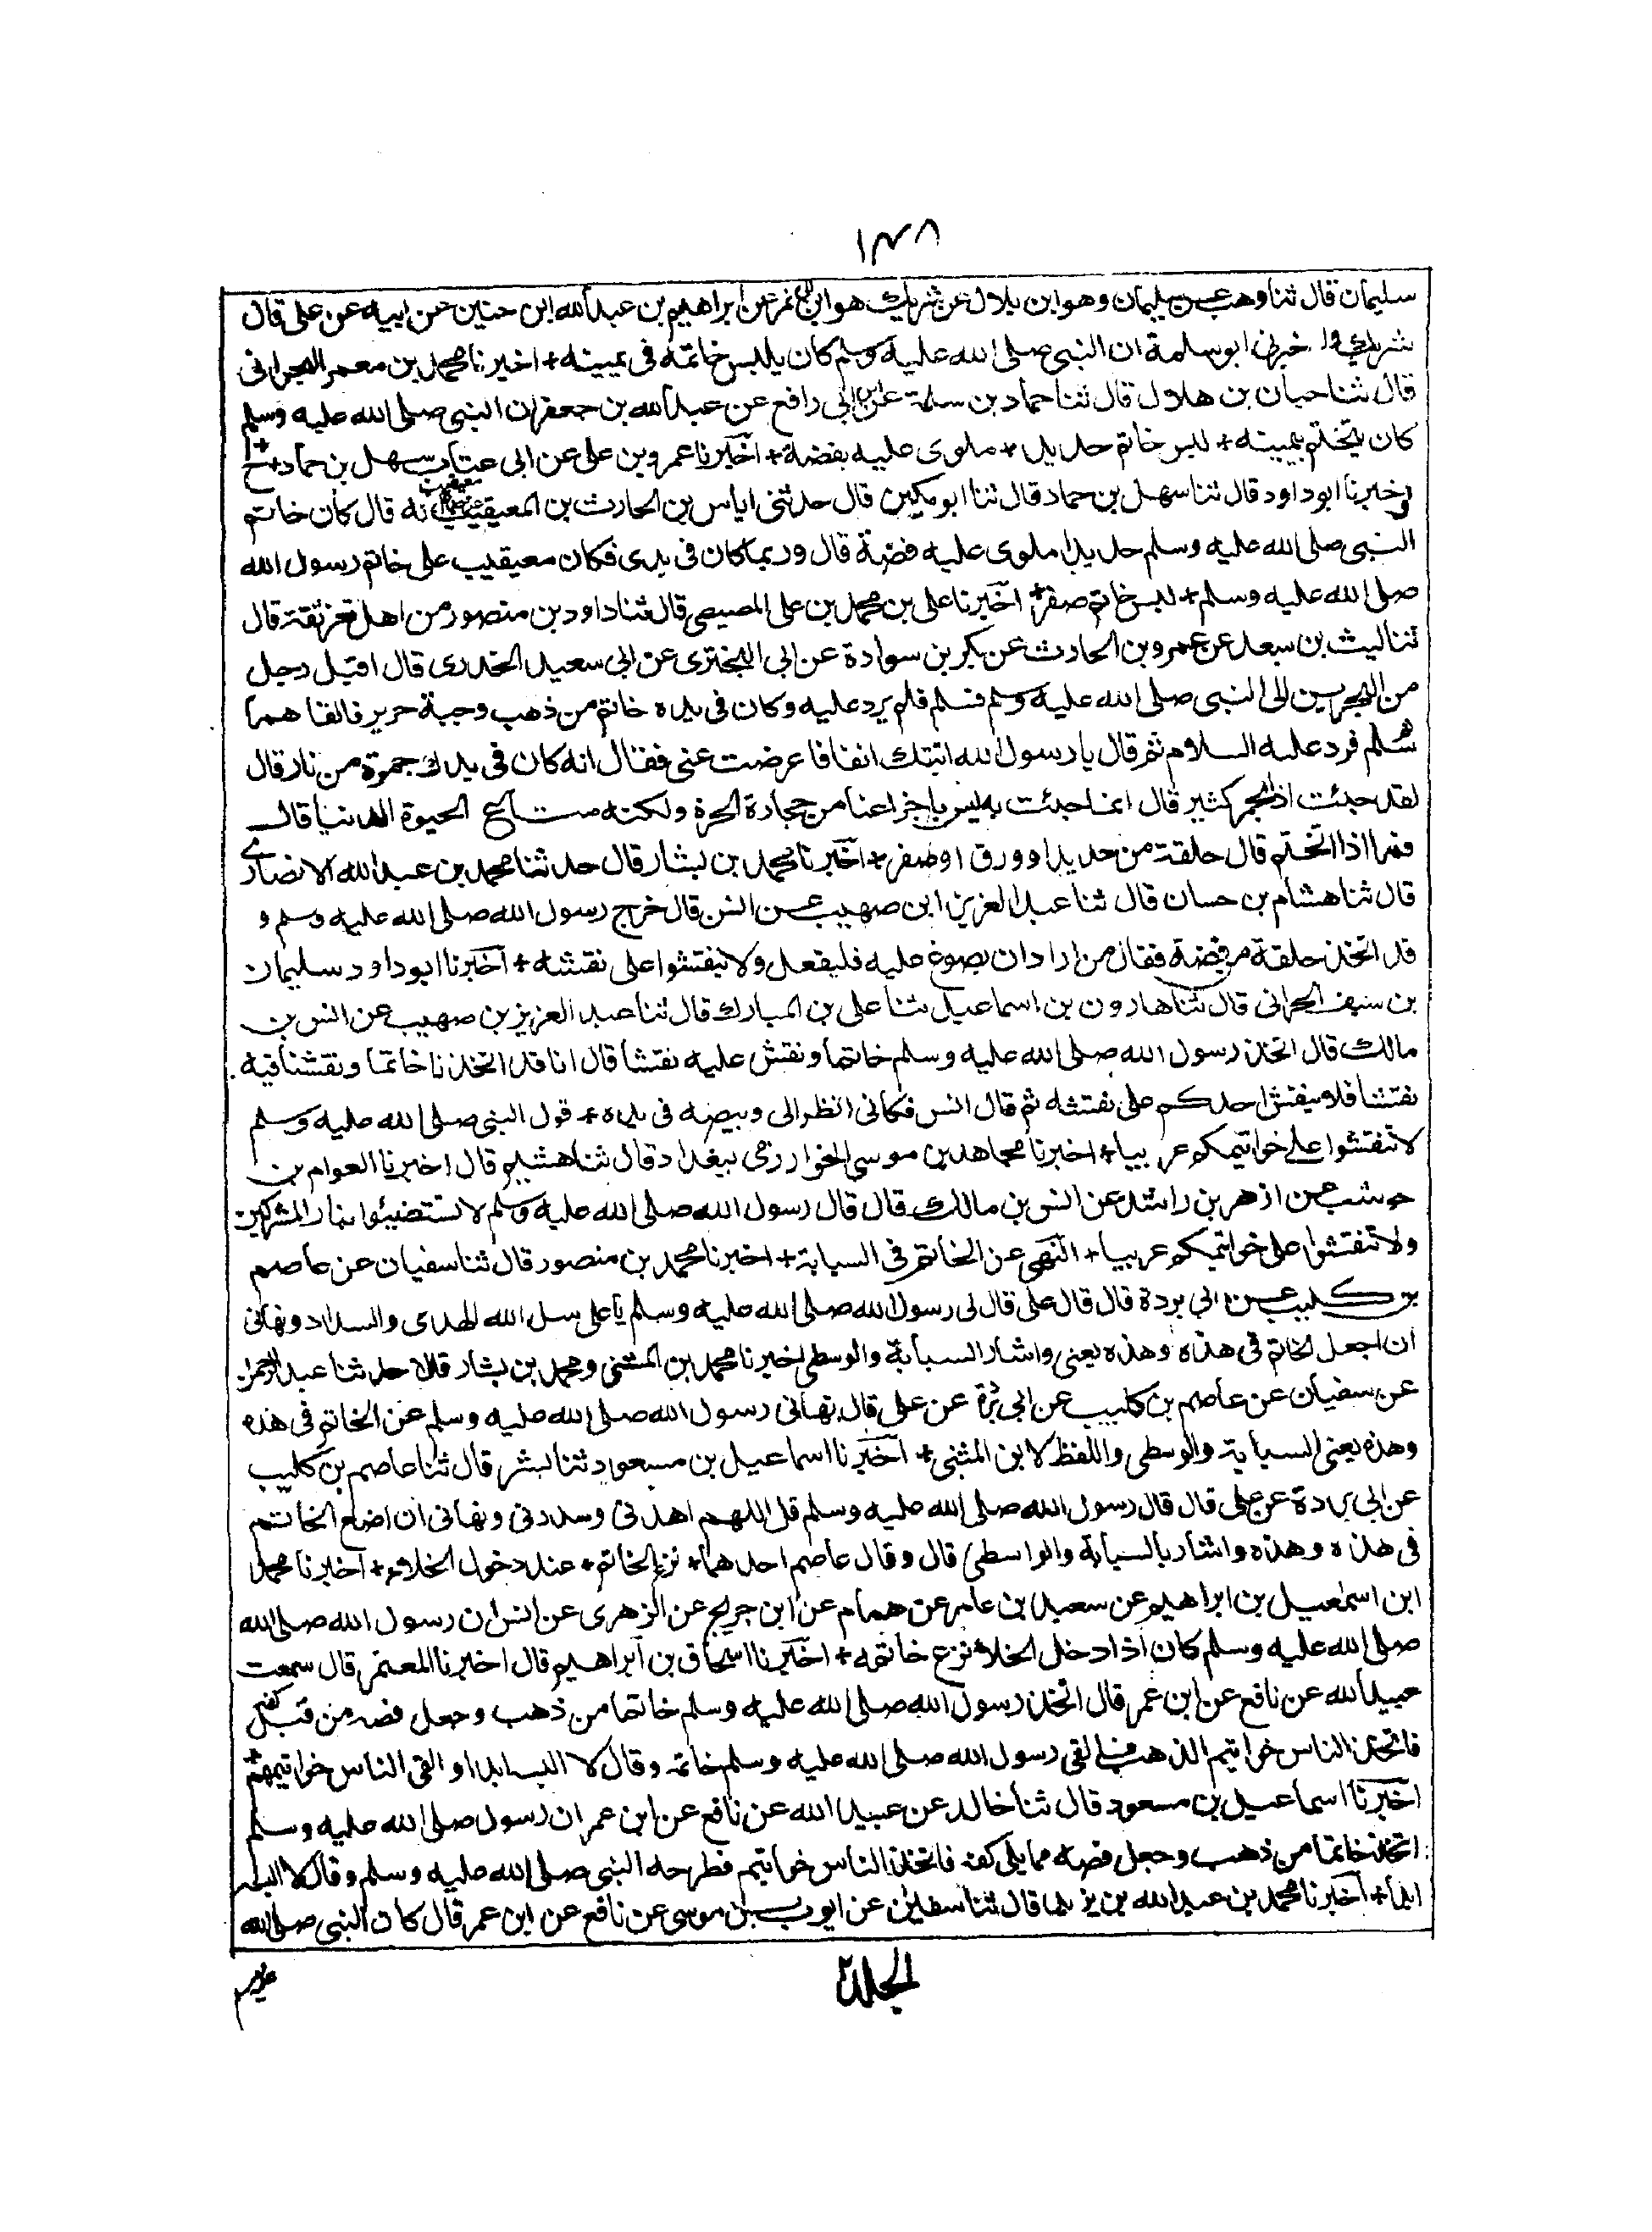 ١٣٨
سليمان قال ثنا وهب عن سليمان وهو ابن بلال عن شريك هو ابن ابي نمر عن ابراهيم بن عبد الله ابن حنين عن ابيه عن على قال
شريك واخبرنى ابو سلمة ان النبى صلى الله عليه وسلم كان يلبس خاتمه فى يمينه + اخبرنا محمد بن معمر البحرانى
قال ثنا حبان بن هلال قال ثنا حماد بن سلمة عن ابن ابى رافع عن عبد الله بن جعفر ان النبى صلى الله عليه وسلم
كان يتختم بيمينه + لبس خاتم حديد + ملوى عليه بفضة + اخبرنا عمرو بن على عن ابى عتاب سهل بن حماد + ح
واخبرنا ابو داود قال ثنا سهل بن حماد قال ثنا ابو مكين قال حدثنى اياس بن الحارث بن المعيقيب عن جده معيقيب انه قال كان خاتم
النبى صلى الله عليه وسلم حديدا ملوى عليه فضة قال وربما كان فى يدى فكان معيقيب على خاتم رسول الله
صلى الله عليه وسلم + لبس خاتم صفر + اخبرنا على بن محمد بن على المصيصى قال ثنا داود بن منصور من اهل ثغر ثقة قال
ثنا ليث بن سعد عن عمرو بن الحارث عن بكر بن سوادة عن ابى البخترى عن ابى سعيد الخدرى قال اقبل رجل
من البحرين الى النبى صلى الله عليه وسلم فسلم فلم يرد عليه وكان فى يده خاتم من ذهب وجبة حرير فالقاهما
ثم سلم فرد عليه السلام ثم قال يا رسول الله اتيتك انفا فاعرضت عنى فقال انه كان فى يدك جمرة من نار قال
لقد جئت اذا بجمر كثير قال انما جئت به ليس باجزا عنا من حجارة الحرة ولكنه متاع الحيوة الدنيا قال
فمرا اذا اتختم قال حلقة من حديد او ورق او صفر + اخبرنا محمد بن بشار قال حدثنا محمد بن عبد الله الانصارى
قال ثنا هشام بن حسان قال ثنا عبد العزيز ابن صهيب عن انس قال خرج رسول الله صلى الله عليه وسلم و
قد اتخذ حلقة من فضة فقال من اراد ان يصوغ عليه فليفعل ولا تنقشوا على نقشه + اخبرنا ابو داود سليمان
بن سيف الحرانى قال ثنا هارون بن اسماعيل ثنا على بن المبارك قال ثنا عبد العزيز بن صهيب عن انس بن
مالك قال اتخذ رسول الله صلى الله عليه وسلم خاتما ونقش عليه نقشا قال انا قد اتخذنا خاتما ونقشنا فيه
نقشا فلا ينقش احدكم على نقشه ثم قال انس فكانى انظر الى وبيصه فى يده + قول النبى صلى الله عليه وسلم
لا تنقشوا على خواتيمكم عربيا + اخبرنا مجاهد بن موسى الخوارزمى ببغداد قال ثنا هشيم قال اخبرنا العوام بن
حوشب عن ازهر بن راشد عن انس بن مالك قال قال رسول الله صلى الله عليه وسلم لا تستضيئوا بنار المشركين
ولا تنقشوا على خواتيمكم عربيا + النهى عن الخاتم فى السبابة + اخبرنا محمد بن منصور قال ثنا سفيان عن عاصم
بن كليب عن ابى بردة قال قال على قال لى رسول الله صلى الله عليه وسلم يا على سل الله الهدى والسداد ونهانى
ان اجعل الخاتم فى هذه وهذه يعنى واشار السبابة والوسطى اخبرنا محمد بن المثنى ومحمد بن بشار قالا حدثنا عبد الرحمن
عن سفيان عن عاصم بن كليب عن ابى بردة عن على قال نهانى رسول الله صلى الله عليه وسلم عن الخاتم فى هذه
وهذه يعنى السبابة والوسطى واللفظ لابن المثنى + اخبرنا اسماعيل بن مسعود ثنا بشر قال ثنا عاصم بن كليب
عن ابى بردة عن على قال قال رسول الله صلى الله عليه وسلم قل اللهم اهدنى وسددنى ونهانى ان اضع الخاتم
فى هذه وهذه واشار بالسبابة والواسطى قال وقال عاصم احدهما + نزع الخاتم + عند دخول الخلاء + اخبرنا محمد
ابن اسمعيل بن ابراهيم عن سعيد بن عامر عن همام عن ابن جريج عن الزهرى عن انس ان رسول الله صلى الله
صلى الله عليه وسلم كان اذا دخل الخلاء نزع خاتمه + اخبرنا اسحاق بن ابراهيم قال اخبرنا المعتمر قال سمعت
عبيد الله عن نافع عن ابن عمر قال اتخذ رسول الله صلى الله عليه وسلم خاتما من ذهب وجعل فصه من قبل كفه
فاتخذ الناس خواتيم الذهب فالقى رسول الله صلى الله عليه وسلم خاتمه وقال لا البسه ابدا والقى الناس خواتيمهم +
اخبرنا اسماعيل بن مسعود قال ثنا خالد عن عبيد الله عن نافع عن ابن عمر ان رسول صلى الله عليه وسلم
اتخذ خاتما من ذهب وجعل فصه مما يلى كفه فاتخذ الناس خواتيم فطرحه النبى صلى الله عليه وسلم وقال لا البسه
ابدا + اخبرنا محمد بن عبد الله بن يزيد قال ثنا سفيان عن ايوب بن موسى عن نافع عن ابن عمر قال كان النبى صلى الله
الجلد٢